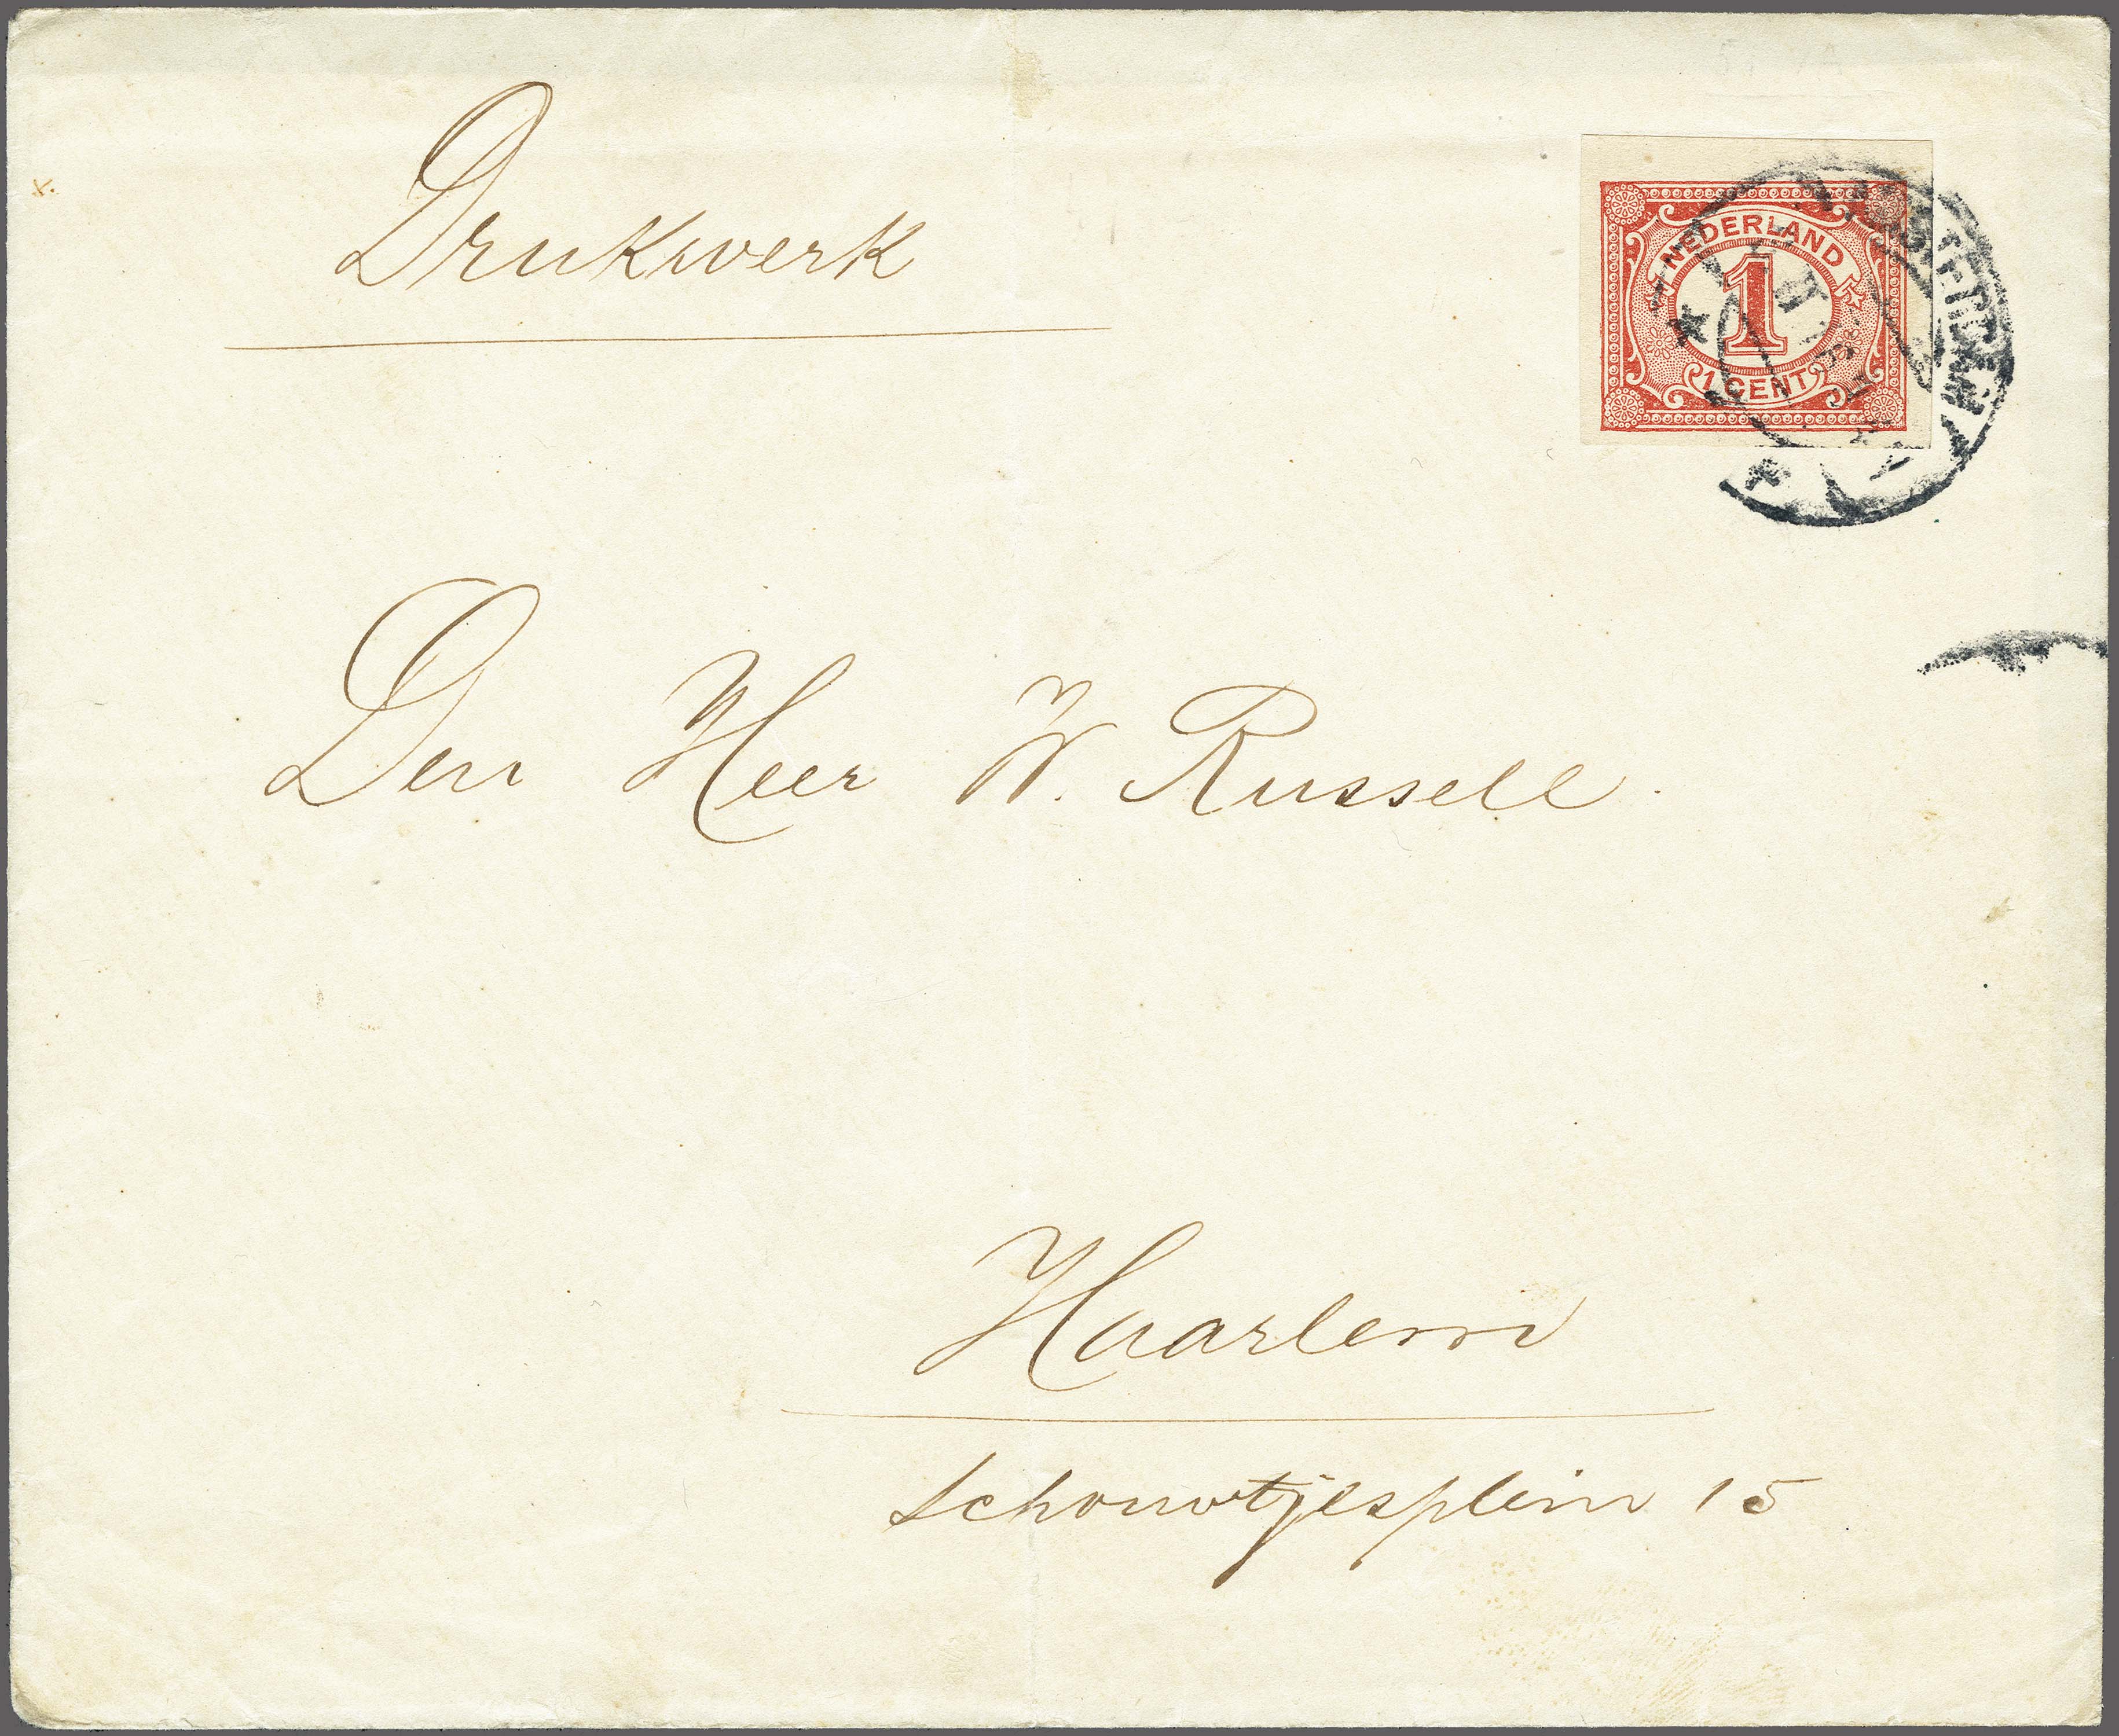 Drukwerk
NEDERLAND
1
1 CENT
AMSTERDAM
Den Heer W. Russell.
Haarlem
Schouwtjesplein 15